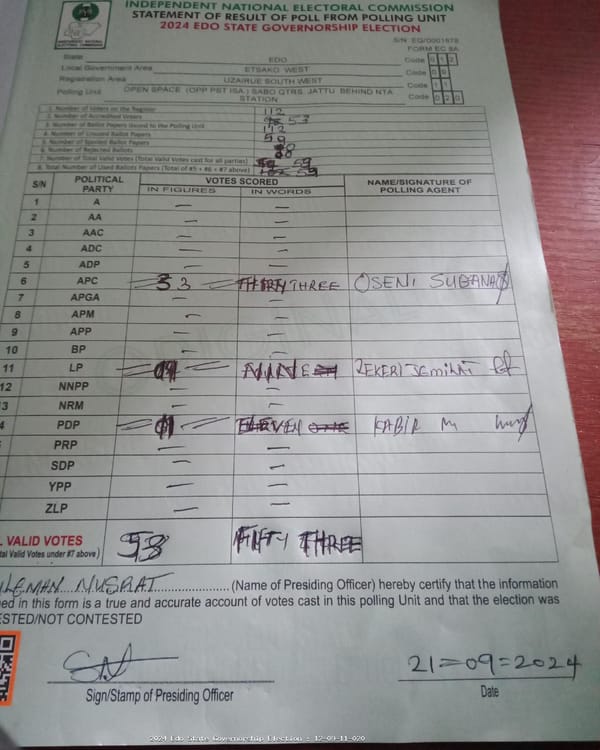 INDEPENDENT NATIONAL ELECTORAL COMMISSION
STATEMENT OF RESULT OF POLL FROM POLLING UNIT
2024 EDO STATE GOVERNORSHIP ELECTION
FORM EC 8A
State EDO Code 012
Local Government Area ETSAKO WEST Code
Registration Area UZAIRUE SOUTH WEST Code 11
Polling Unit OPEN SPACE (OPP PST ISA.) SABO QTRS. JATTU BEHIND NTA STATION Code 020
1. Number of Voters on the Register 112
2. Number of Accredited Voters 53
3. Number of Ballot Papers Issued to the Polling Unit 112
4. Number of Unused Ballot Papers 59
5. Number of Spoiled Ballot Papers
6. Number of Rejected Ballots
7. Number of Total Valid Votes (Total Valid Votes cast for all parties) 59
8. Total Number of Used Ballots Papers (Total of #5 + #6 + #7 above) 59
S/N POLITICAL PARTY VOTES SCORED NAME/SIGNATURE OF POLLING AGENT
IN FIGURES IN WORDS
1 A — —
2 AA — —
3 AAC — —
4 ADC — —
5 ADP — —
6 APC 33 THIRTY THREE OSENI
7 APGA — —
8 APM — —
9 APP — —
10 BP — —
11 LP NINE
12 NNPP — —
3 NRM — —
4 PDP KABIR M
PRP — —
SDP — —
YPP — —
ZLP — —
VALID VOTES 53 FIFTY THREE
tal Valid Votes under #7 above)
LEMAN NUSRAT (Name of Presiding Officer) hereby certify that the information
ed in this form is a true and accurate account of votes cast in this polling Unit and that the election was
ESTED/NOT CONTESTED
21=09=2024
Sign/Stamp of Presiding Officer Date
2024 Edo State Governorship Election : 12-09-11-020